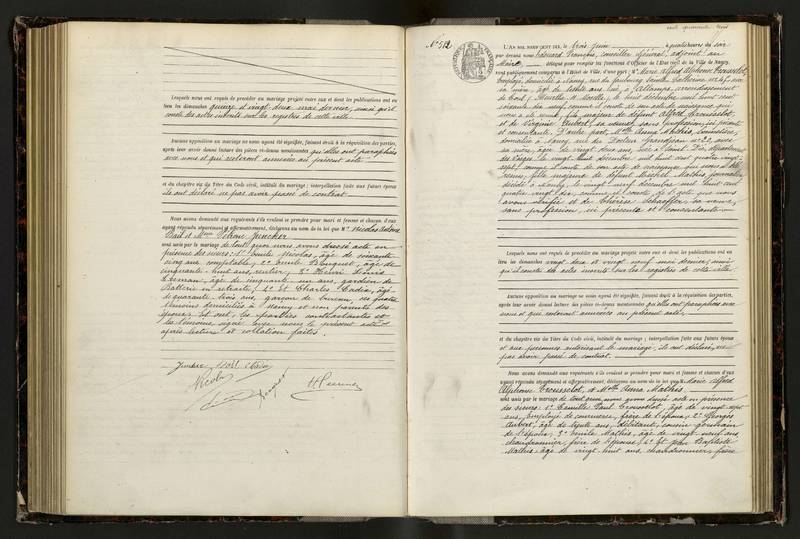 Lesquels nous ont requis de procéder au mariage projeté entre eux et dont les publications ont eu
lieu les dimanches quinze et vingt deux mai dernier, ainsi qu'il
conste des actes inscrits sur les registres de cette ville.
Aucune opposition au mariage ne nous ayant été signifiée, faisant droit à la réquisition des parties,
après leur avoir donné lecture des pièces ci-dessus mentionnées qu'elles ont paraphées
avec nous et qui resteront annexées au présent acte
et du chapitre six du Titre du Code civil, intitulé du mariage ; interpellation faite aux futurs époux
ils ont déclaré ne pas avoir passé de contrat.
Nous avons demandé aux requérants s'ils veulent se prendre pour mari et femme et chacun d'eux
ayant répondu séparément et affirmativement, déclarons au nom de la loi que Mr Nicolas
Paul et Mme Juncker
sont unis par le mariage de tout quoi nous avons dressé acte en
présence des sieurs : 1° Emile Nicolas, âgé de soixante
cinq ans, comptable, 2° Emile Bouquet, âgé de
cinquante huit ans, rentier, 3° Henri Louis
âgé de cinquante un ans, gardien de
Batterie en retraite, 4° et Charles Cadix, âgé
de quarante trois ans, garçon de bureau, les quatre
témoins domiciliés à Nancy et non parents des
époux. Et ont, les parties contractantes et
les témoins signé avec nous le présent acte
après lecture et collation faites.
Juncker
Nicolas
N° 512
L'AN MIL NEUF CENT DIX, le trois juin à quatre heures du soir
par devant nous Edouard François, conseiller général, adjoint au
Maire, délégué pour remplir les fonctions d'Officier de l'État civil de la Ville de Nancy,
sont publiquement comparus à l'Hôtel de Ville, d'une part : Mr Marie Alfred Alphonse Trousselot,
domicilié à Nancy, rue du faubourg Sainte Catherine N° 47, avec
sa mère, âgé de trente ans, né à Allamps, arrondissement
de Toul (Meurthe et Moselle), le huit décembre mil huit cent
soixante dix neuf, comme il conste de son acte de naissance qui
nous a été remis, fils majeur de défunt Alfred Trousselot,
et de Virginie Aubert, sa veuve, sans profession, ici présente
et consentante. D'autre part, Mlle Anna Mathis,
domiciliée à Nancy, rue du Docteur Grandjean N° 20, avec
sa mère, âgée de vingt deux ans, née à Saint Dié, département
des Vosges, le vingt huit décembre mil huit cent quatre vingt
sept, comme il conste de son acte de naissance qui nous a été
remis, fille majeure de défunt Michel Mathis, journalier
décédé à Nancy, le vingt neuf décembre mil huit cent
quatre vingt dix, comme il conste de l'acte que nous
avons vérifié et de Thérèse Schaeffer sa veuve,
sans profession, ici présente et consentante
Lesquels nous ont requis de procéder au mariage projeté entre eux et dont les publications ont eu
lieu les dimanches vingt deux et vingt neuf mai dernier, ainsi
qu'il conste des actes inscrits sur les registres de cette ville.
Aucune opposition au mariage ne nous ayant été signifiée, faisant droit à la réquisition des parties,
après leur avoir donné lecture des pièces ci-dessus mentionnées qu'elles ont paraphées avec
nous et qui resteront annexées au présent acte,
et du chapitre six du Titre du Code civil, intitulé du mariage ; interpellation faite aux futurs époux
et aux personnes autorisant le mariage, ils ont déclaré ne
pas avoir passé de contrat.
Nous avons demandé aux requérants s'ils veulent se prendre pour mari et femme et chacun d'eux
ayant répondu séparément et affirmativement, déclarons au nom de la loi que Marie Alfred
Alphonse Trousselot, et Mlle Anna Mathis
sont unis par le mariage de tout quoi nous avons dressé acte en présence
des sieurs : 1° Camille Paul Trousselot, âgé de vingt sept
ans, employé de commerce, frère de l'époux, 2° Georges
Aubert, âgé de trente ans, débitant, cousin germain
de l'époux, 3° Emile Mathis, âgé de vingt neuf ans,
chaudronnier, frère de l'épouse, 4° et Jean Baptiste
Mathis, âgé de vingt huit ans, chaudronnier, frère